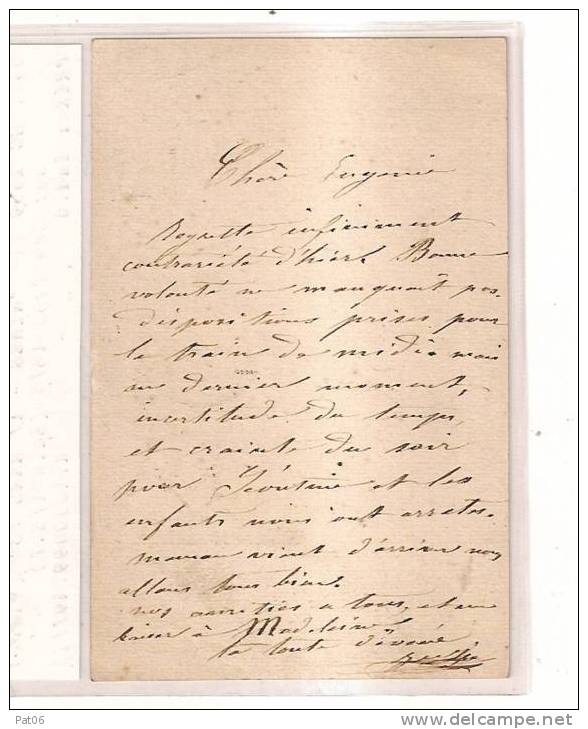 Chère Eugenie
Regrette infiniment
contrariété d'hier. Bonne
volonté ne manquait pas.
dispositions prises pour
le train de midi. mais
au dernier moment,
incertitude du temps,
et crainte du soir
pour Léontine et les
enfants nous ont arretés.
maman vient d'arriver nous
allons tous bien.
nos amitiés a tous, et un
baiser à Madeleine
ta toute dévouée
Pat06
www.delcampe.net